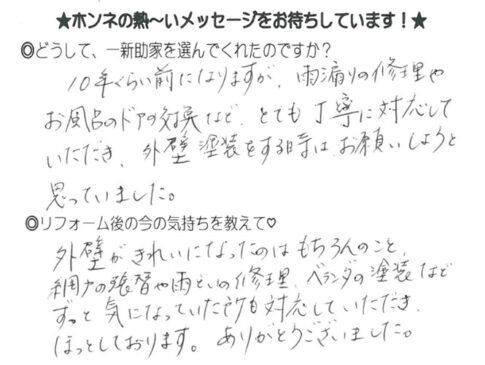 ★ホンネの熱～いメッセージをお待ちしています！★
◎どうして、一新助家を選んでくれたのですか？
10年ぐらい前になりますが、雨漏りの修理や
お風呂のドアの交換など、とても丁寧に対応して
いただき、外壁塗装をする時は、お願いしようと
思っていました。
◎リフォーム後の今の気持ちを教えて♡
外壁がきれいになったのはもちろんのこと、
網戸の張替や雨といの修理、ベランダの塗装など
ずっと気になっていた所も対応していただき、
ほっとしております。ありがとうございました。